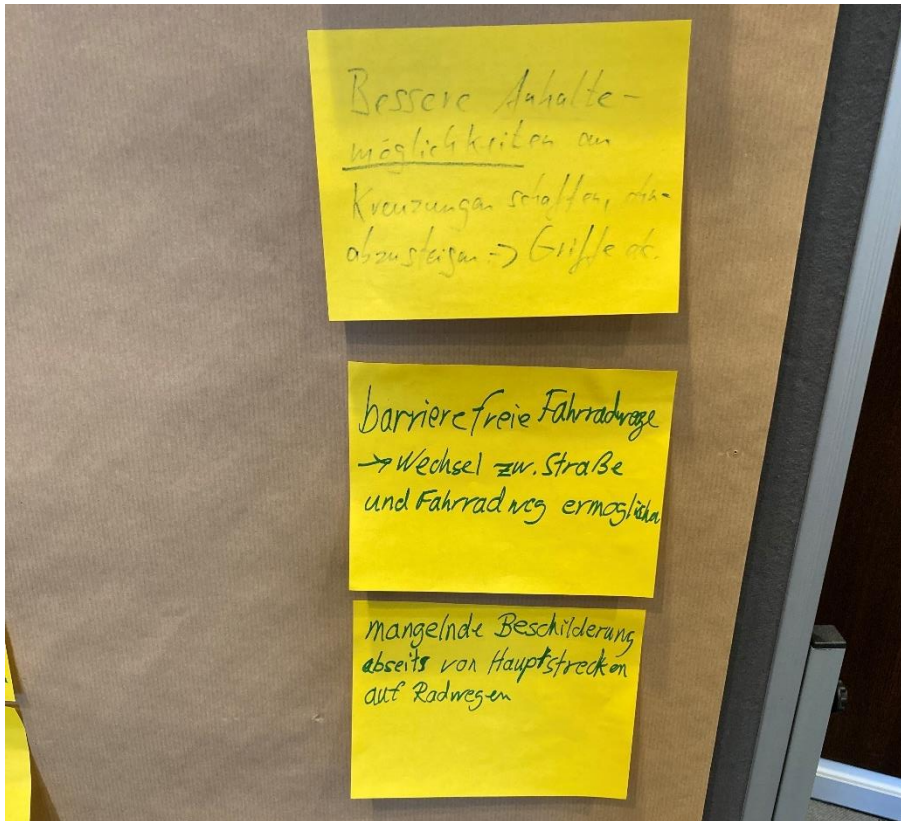 Bessere Anhalte-
möglichkeiten an
Kreuzungen schaffen, ohn-
abzusteigen -> Griffe etc.
barrierefreie Fahrradwege
→ Wechsel zw. Straße
und Fahrradweg ermöglichen
mangelnde Beschilderung
abseits von Hauptstrecken
auf Radwegen